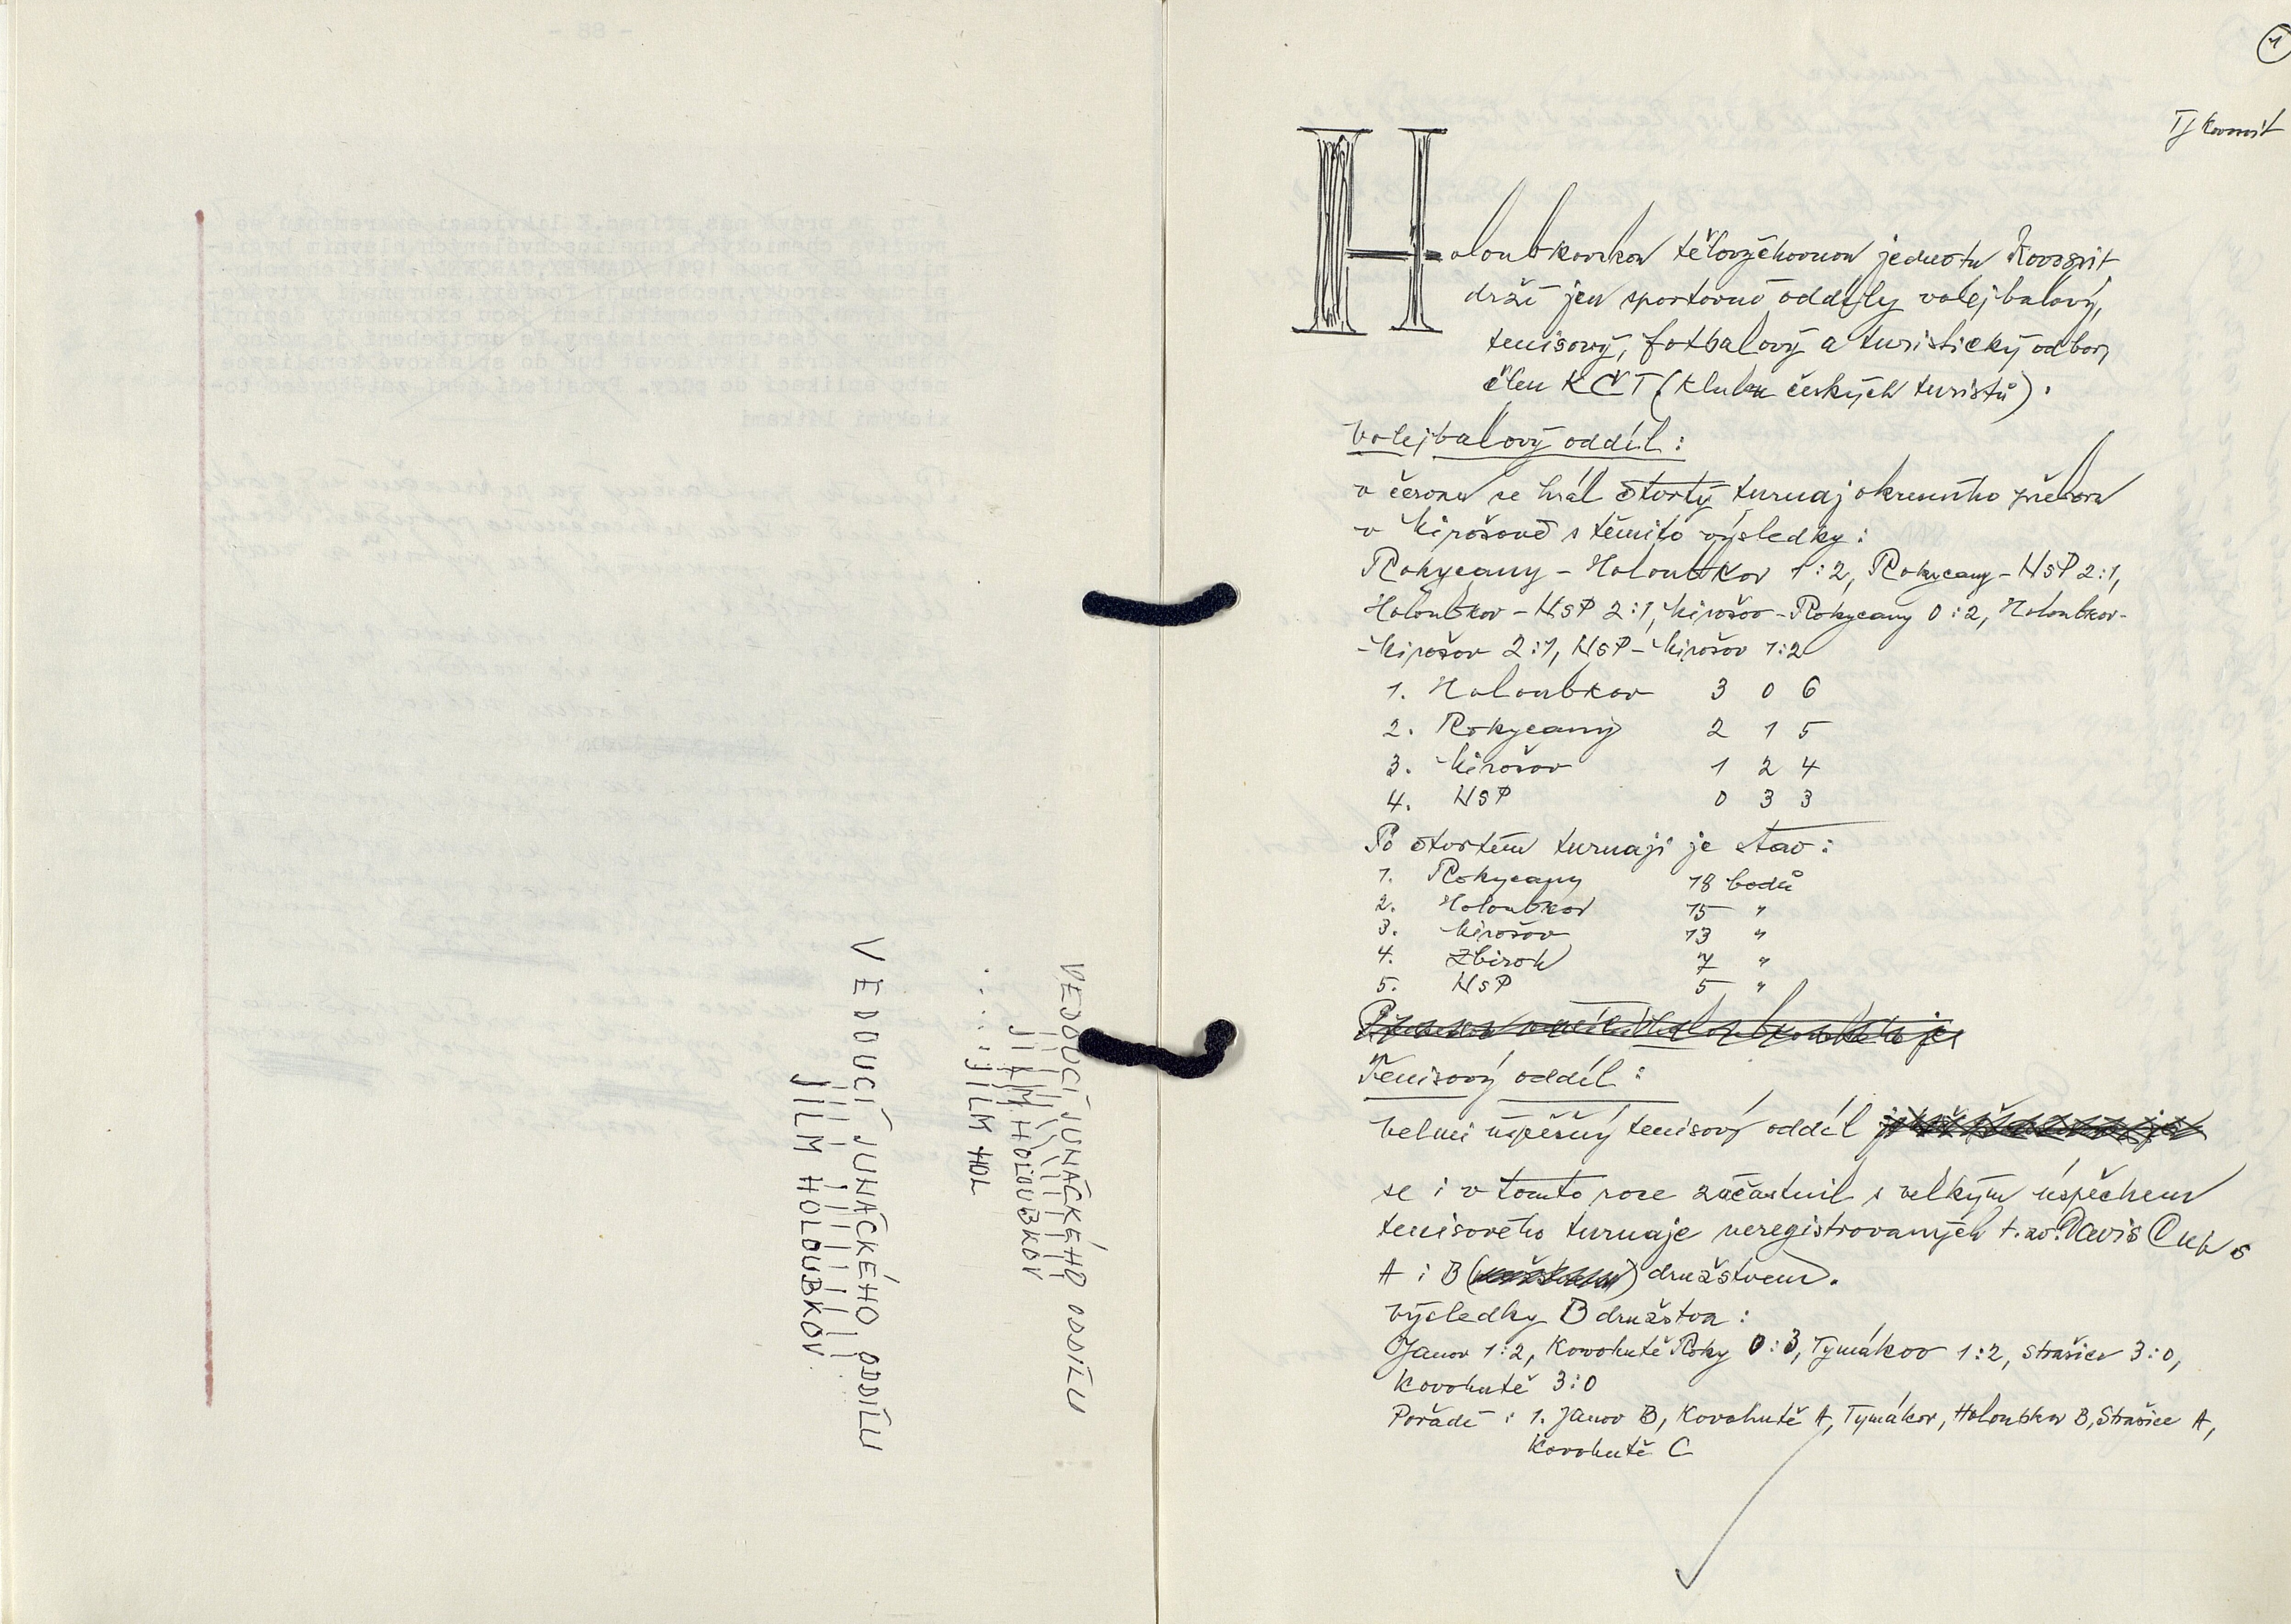 VEDOUCÍ JUNÁCKÉHO ODDÍLU
JILM HOLOUBKOV
JILM HOL
VEDOUCÍ JUNÁCKÉHO ODDÍLU
JILM HOLOUBKOV
1
TJ Kovosvit
Holoubkovskou tělovýchovnou jednotu Kovosvit
drží jen sportovně oddíly volejbalový,
tenisový, fotbalový a turistický odbor,
člen KČT (Klubu českých turistů).
Volejbalový oddíl:
v červnu se hrál čtvrtý turnaj okresního přeboru
v Mirošově s těmito výsledky:
Rokycany - Holoubkov 1:2, Rokycany - NSP 2:1,
Holoubkov - NSP 2:1, Mirošov - Rokycany 0:2, Holoubkov-
-Mirošov 2:1, NSP - Mirošov 1:2
1. Holoubkov 3 0 6
2. Rokycany 2 1 5
3. Mirošov 1 2 4
4. NSP 0 3 3
Po čtvrtém turnaji je stav:
1. Rokycany 18 bodů
2. Holoubkov 15 "
3. Mirošov 13 "
4. Zbiroh 7 "
5. NSP 5 "
Tenisový oddíl:
Velmi úspěšný tenisový oddíl
se i v tomto roce zúčastnil s velkým úspěchem
tenisového turnaje neregistrovaných t.zv. Davis Cup s
A i B ( ) družstvem.
výsledky B družstva:
Janov 1:2, Kovohutě Roky 0:3, Tymákov 1:2, Strašice 3:0,
Kovohutě 3:0
Pořadí: 1. Janov B, Kovohutě A, Tymákov, Holoubkov B, Strašice A,
Kovohutě C